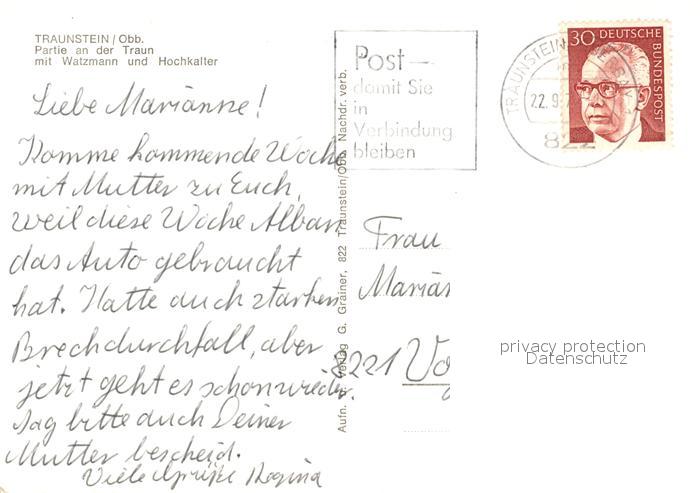 TRAUNSTEIN / Obb.
Partie an der Traun
mit Watzmann und Hochkalter
Liebe Marianne!
Komme kommende Woche
mit Mutter zu Euch,
weil diese Woche Alban
das Auto gebraucht
hat. Hatte auch starken
Brechdurchfall, aber
jetzt geht es schon wieder.
Sag bitte auch Deiner
Mutter bescheid.
Viele Grüße Regina
Aufn. u. Verlag G. Grainer, 822 Traunstein/Obb. Nachdr. verb.
Post —
damit Sie
in
Verbindung
bleiben
TRAUNSTEIN
22.9.
822
30 DEUTSCHE
BUNDESPOST
Frau
Marian
8221 Vo
privacy protection
Datenschutz